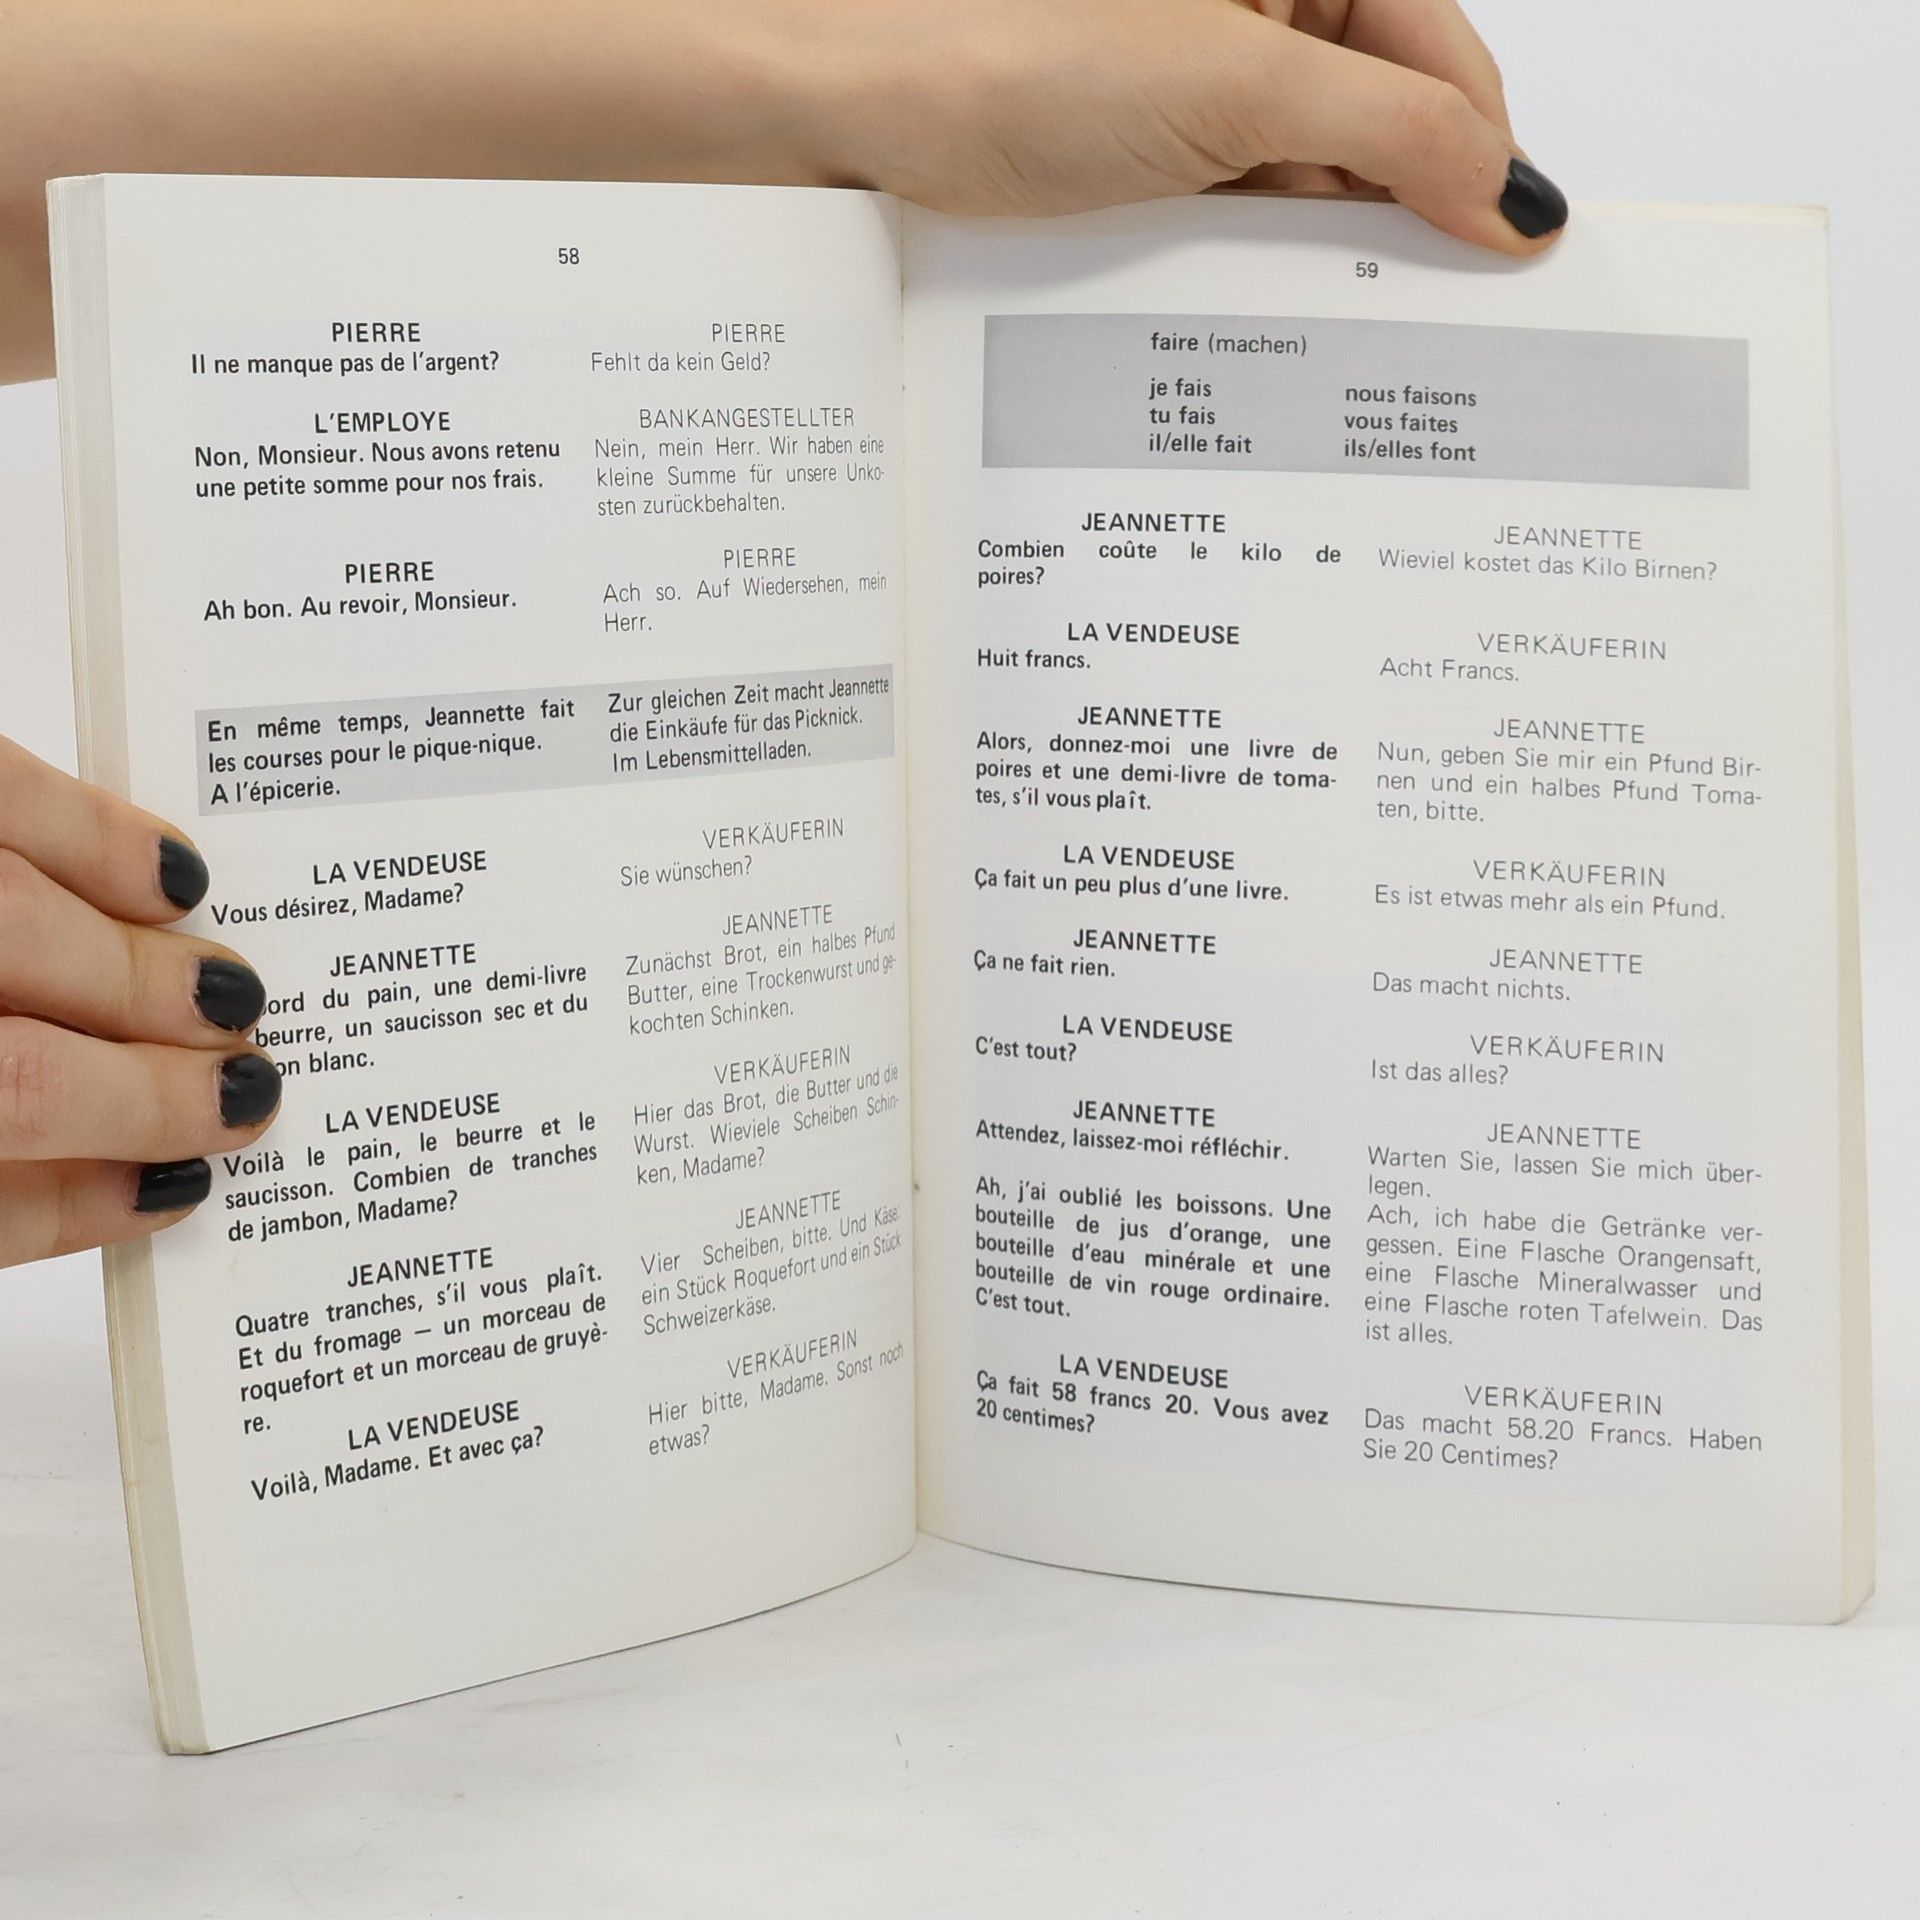 58
PIERRE
Il ne manque pas de l'argent?
L'EMPLOYE
Non, Monsieur. Nous avons retenu
une petite somme pour nos frais.
PIERRE
Ah bon. Au revoir, Monsieur.
En même temps, Jeannette fait
les courses pour le pique-nique.
A l'épicerie.
LA VENDEUSE
Vous désirez, Madame?
JEANNETTE
du pain, une demi-livre
beurre, un saucisson sec et du
blanc.
LA VENDEUSE
Voilà le pain, le beurre et le
saucisson. Combien de tranches
de jambon, Madame?
JEANNETTE
Quatre tranches, s'il vous plaît.
Et du fromage – un morceau de
roquefort et un morceau de gruyè-
re.
LA VENDEUSE
Voilà, Madame. Et avec ça?
PIERRE
Fehlt da kein Geld?
BANKANGESTELLTER
Nein, mein Herr. Wir haben eine
kleine Summe für unsere Unko-
sten zurückbehalten.
PIERRE
Ach so. Auf Wiedersehen, mein
Herr.
Zur gleichen Zeit macht Jeannette
die Einkäufe für das Picknick.
Im Lebensmittelladen.
VERKÄUFERIN
Sie wünschen?
JEANNETTE
Zunächst Brot, ein halbes Pfund
Butter, eine Trockenwurst und ge-
kochten Schinken.
VERKÄUFERIN
Hier das Brot, die Butter und die
Wurst. Wieviele Scheiben Schin-
ken, Madame?
JEANNETTE
Vier Scheiben, bitte. Und Käse:
ein Stück Roquefort und ein Stück
Schweizerkäse.
VERKÄUFERIN
Hier bitte, Madame. Sonst noch
etwas?
59
faire (machen)
je fais nous faisons
tu fais vous faites
il/elle fait ils/elles font
JEANNETTE
Combien coûte le kilo de
poires?
LA VENDEUSE
Huit francs.
JEANNETTE
Alors, donnez-moi une livre de
poires et une demi-livre de toma-
tes, s'il vous plaît.
LA VENDEUSE
Ça fait un peu plus d'une livre.
JEANNETTE
Ça ne fait rien.
LA VENDEUSE
C'est tout?
JEANNETTE
Attendez, laissez-moi réfléchir.
Ah, j'ai oublié les boissons. Une
bouteille de jus d'orange, une
bouteille d'eau minérale et une
bouteille de vin rouge ordinaire.
C'est tout.
LA VENDEUSE
Ça fait 58 francs 20. Vous avez
20 centimes?
JEANNETTE
Wieviel kostet das Kilo Birnen?
VERKÄUFERIN
Acht Francs.
JEANNETTE
Nun, geben Sie mir ein Pfund Bir-
nen und ein halbes Pfund Toma-
ten, bitte.
VERKÄUFERIN
Es ist etwas mehr als ein Pfund.
JEANNETTE
Das macht nichts.
VERKÄUFERIN
Ist das alles?
JEANNETTE
Warten Sie, lassen Sie mich über-
legen.
Ach, ich habe die Getränke ver-
gessen. Eine Flasche Orangensaft,
eine Flasche Mineralwasser und
eine Flasche roten Tafelwein. Das
ist alles.
VERKÄUFERIN
Das macht 58.20 Francs. Haben
Sie 20 Centimes?